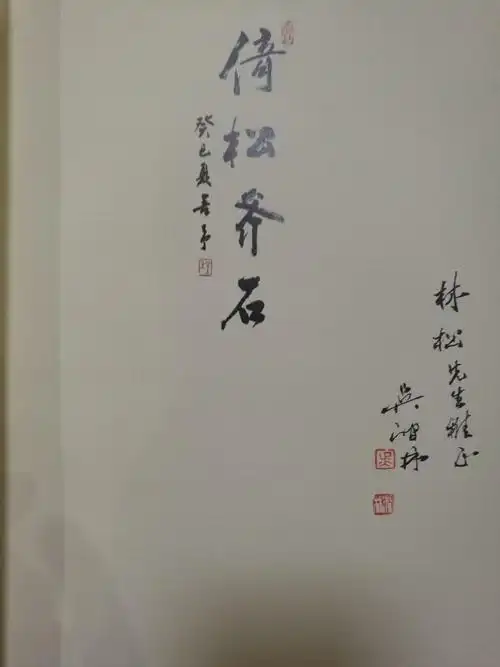 倚松石
癸巳夏
林松先生雅正
吳